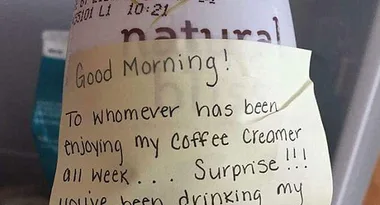 35101 L1 10:21
natural
Good Morning!
To whomever has been
enjoying my coffee creamer
all week... Surprise!!!
you've been drinking my